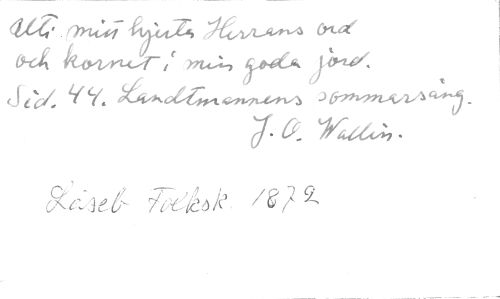 Uti mitt hjerta Herrans ord
och kornet i min goda jord.
Sid. 44. Landtmannens sommarsång.
J. O. Wallin.
Läseb Folksk. 1872